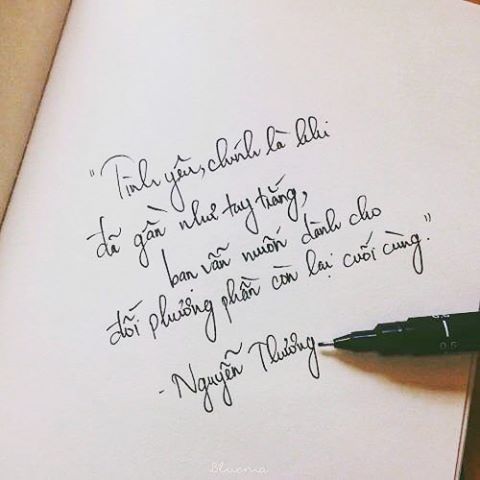 "Tình yêu, chính là khi
đã gần như tay trắng,
bạn vẫn muốn dành cho
đối phương phần còn lại cuối cùng."
- Nguyễn Thương
0.5
Bluenia